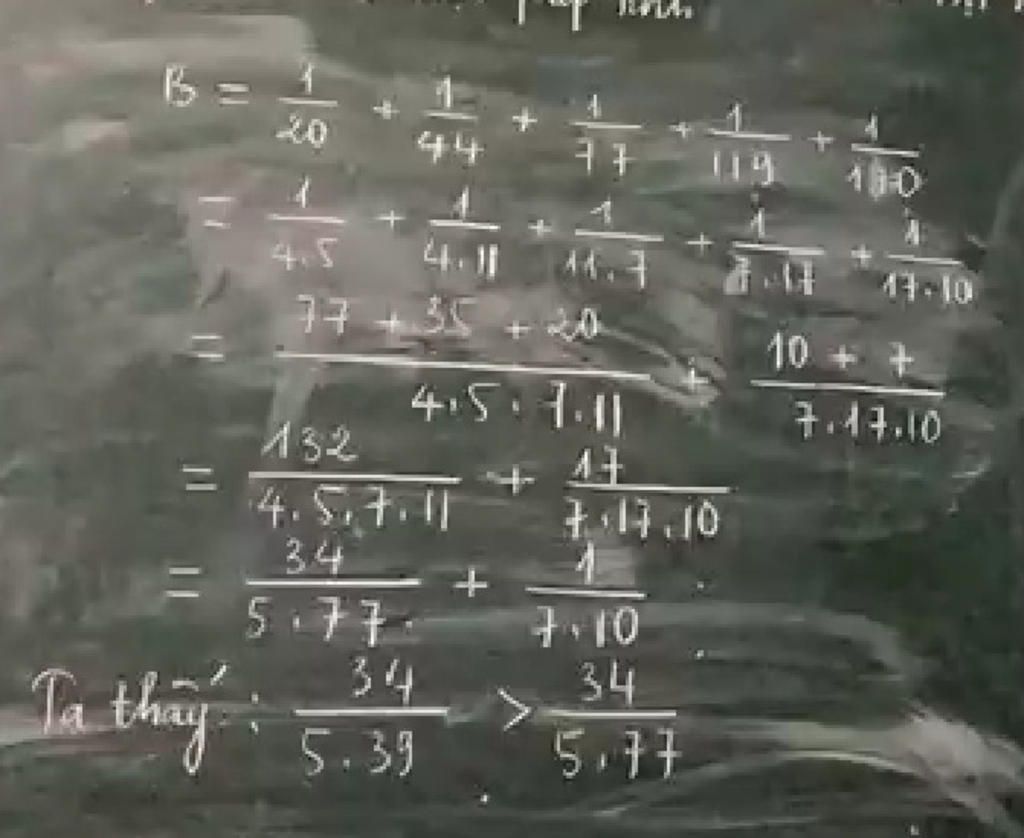 B = 1/20 + 1/44 + 1/77 + 1/119 + 1/170
= 1/4.5 + 1/4.11 + 1/11.7 + 1/7.17 + 1/17.10
= 77 + 35 + 20/4.5.7.11 + 10 + 7/7.17.10
= 132/4.5.7.11 + 17/7.17.10
= 34/5.77 + 1/7.10
Ta thấy : 34/5.39 > 34/5.77